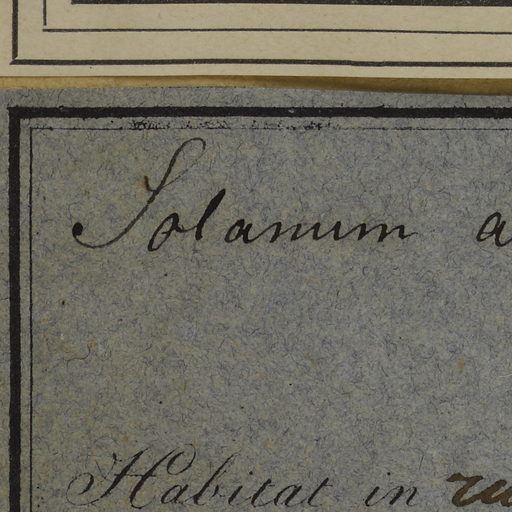 Solanum a
Habitat in